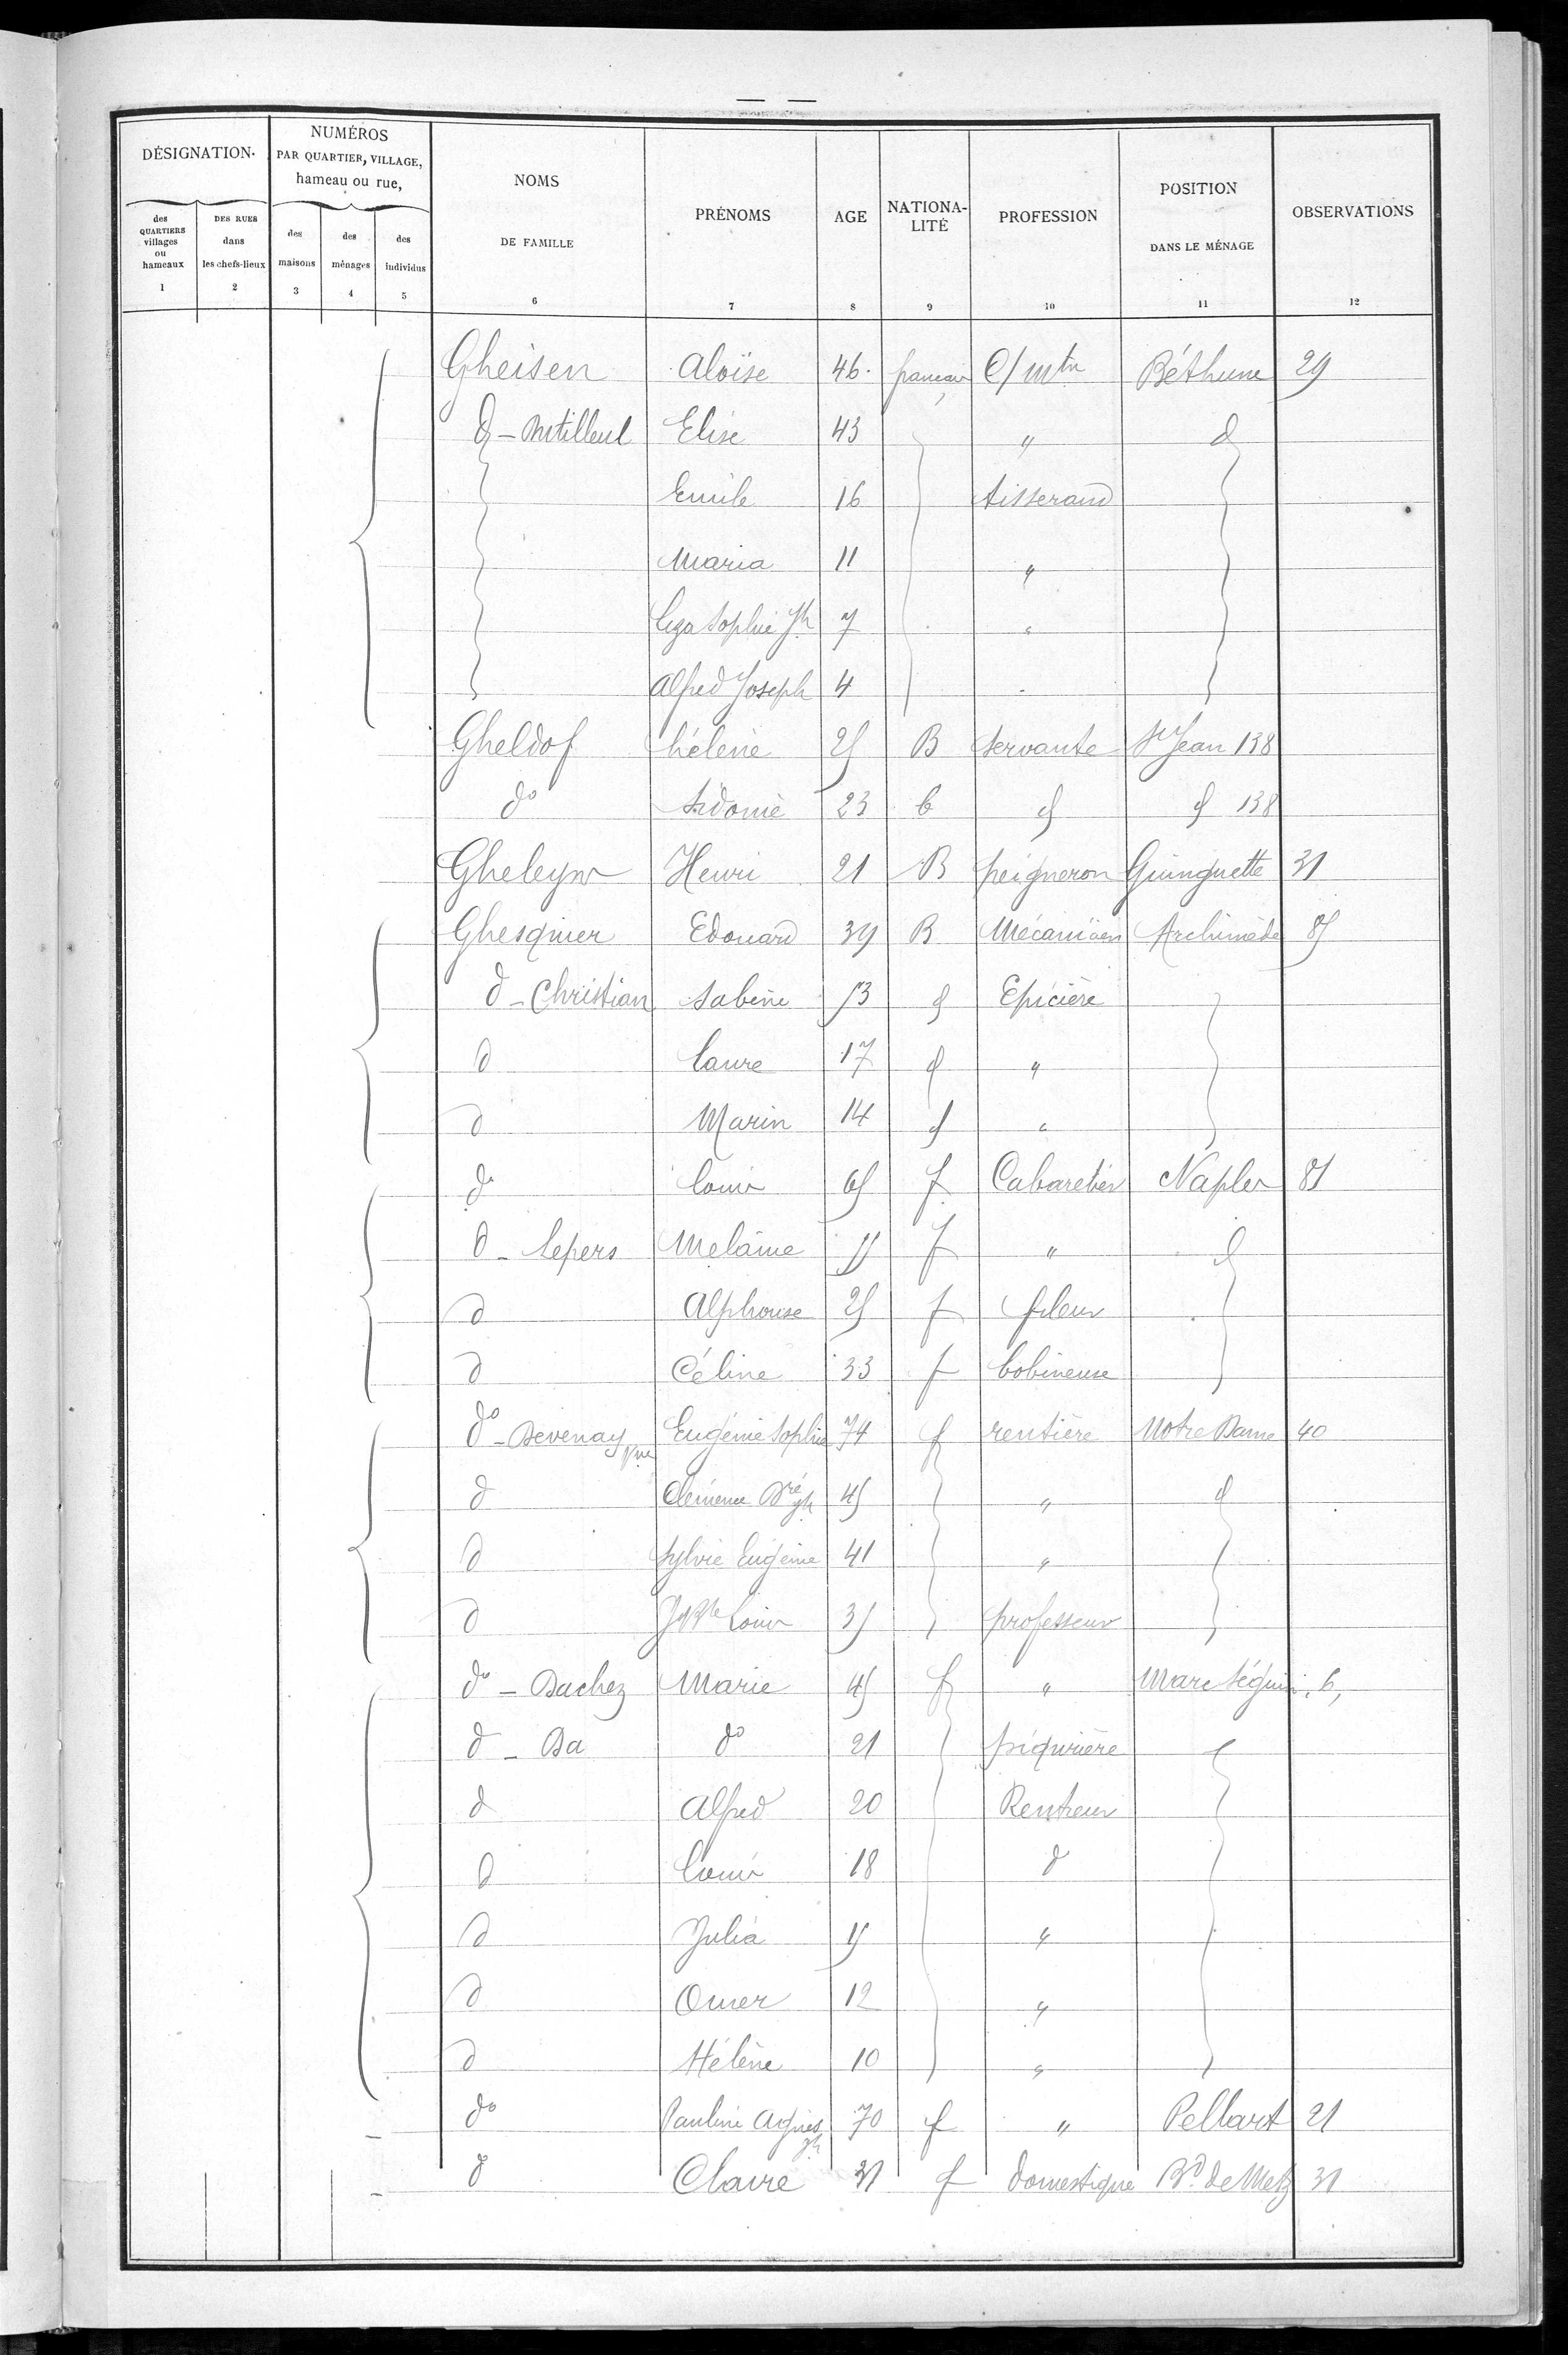 — —
DÉSIGNATION. NUMÉROS PAR QUARTIER, VILLAGE, hameau ou rue, NOMS DE FAMILLE PRÉNOMS AGE NATIONA-LITÉ PROFESSION POSITION DANS LE MÉNAGE OBSERVATIONS
des QUARTIERS villages ou hameaux DES RUES dans les chefs-lieux des maisons des ménages des individus
1 2 3 4 5 6 7 8 9 10 11 12
Gheisen Aloïse 46 français Béthune 29
d - Elise 43 " d
Emile 16 tisserand
Maria 11 "
Sophie Jh 7 "
Alfred Joseph 4
Gheldof hélène 25 B servante St Jean 138
do Sidonie 23 b d d 138
Gheleyns Henri 21 B peigneron Guinguette 31
Ghesquier Edouard 39 B Mécanicien Archimède 85
d - Christian Sabine 53 d Epicière
d Laure 17 d "
d Marin 14 d "
do Louis 65 f Cabaretier Naples 81
d - Lepers Melanie 55 f " d
d Alphonse 25 f fileur
d Céline 33 f bobineuse
do - Devenay Vve Eugénie Sophie 74 f rentière Notre Dame 40
d Clémence Dré Jh 45 " d
d Sylvie Eugénie 41 "
d Jn Bte Louis 35 professeur
do - Dachez Marie 45 f " Marc Séguin 6,
d - Da do 21 piqurière
d Alfred 20 Rentreur
d Louis 18 d
d Julia 15 "
d Omer 12 "
d Hélène 10 "
do Pauline Agnès Jh 70 f " Pellart 21
d Claire 31 f domestique Bd de Metz 31